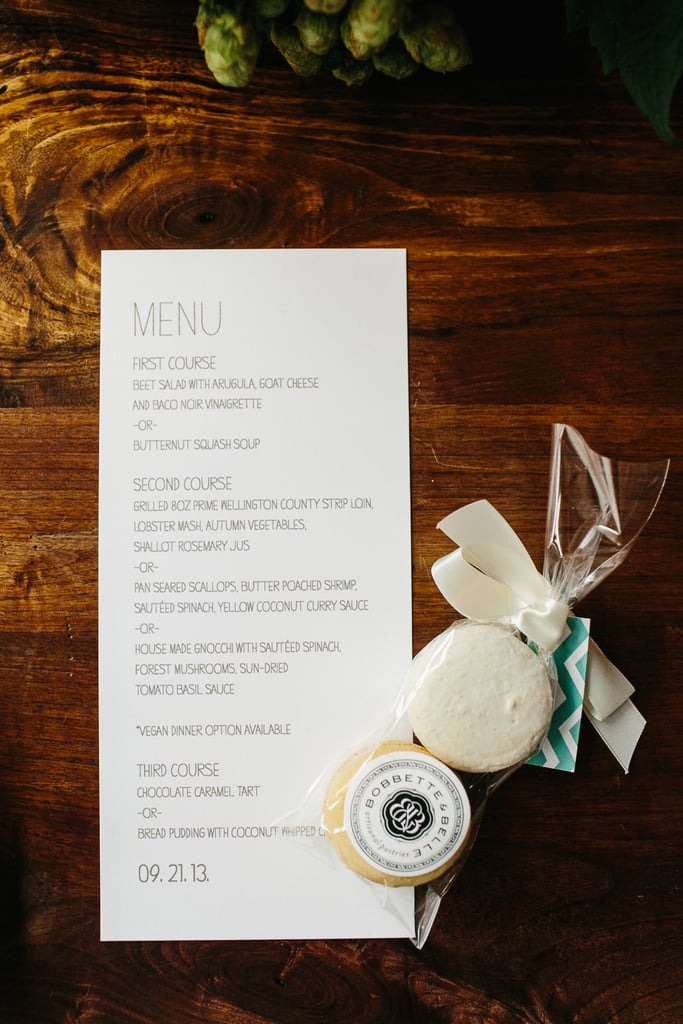 MENU
FIRST COURSE
BEET SALAD WITH ARUGULA, GOAT CHEESE
AND BACO NOIR VINAIGRETTE
-OR-
BUTTERNUT SQUASH SOUP
SECOND COURSE
GRILLED 8OZ PRIME WELLINGTON COUNTY STRIP LOIN,
LOBSTER MASH, AUTUMN VEGETABLES,
SHALLOT ROSEMARY JUS
-OR-
PAN SEARED SCALLOPS, BUTTER POACHED SHRIMP,
SAUTÉED SPINACH, YELLOW COCONUT CURRY SAUCE
-OR-
HOUSE MADE GNOCCHI WITH SAUTÉED SPINACH,
FOREST MUSHROOMS, SUN-DRIED
TOMATO BASIL SAUCE
*VEGAN DINNER OPTION AVAILABLE
THIRD COURSE
CHOCOLATE CARAMEL TART
-OR-
BREAD PUDDING WITH COCONUT WHIPPED
09. 21. 13.
BOBBETTE & BELLE
artisanal pastries